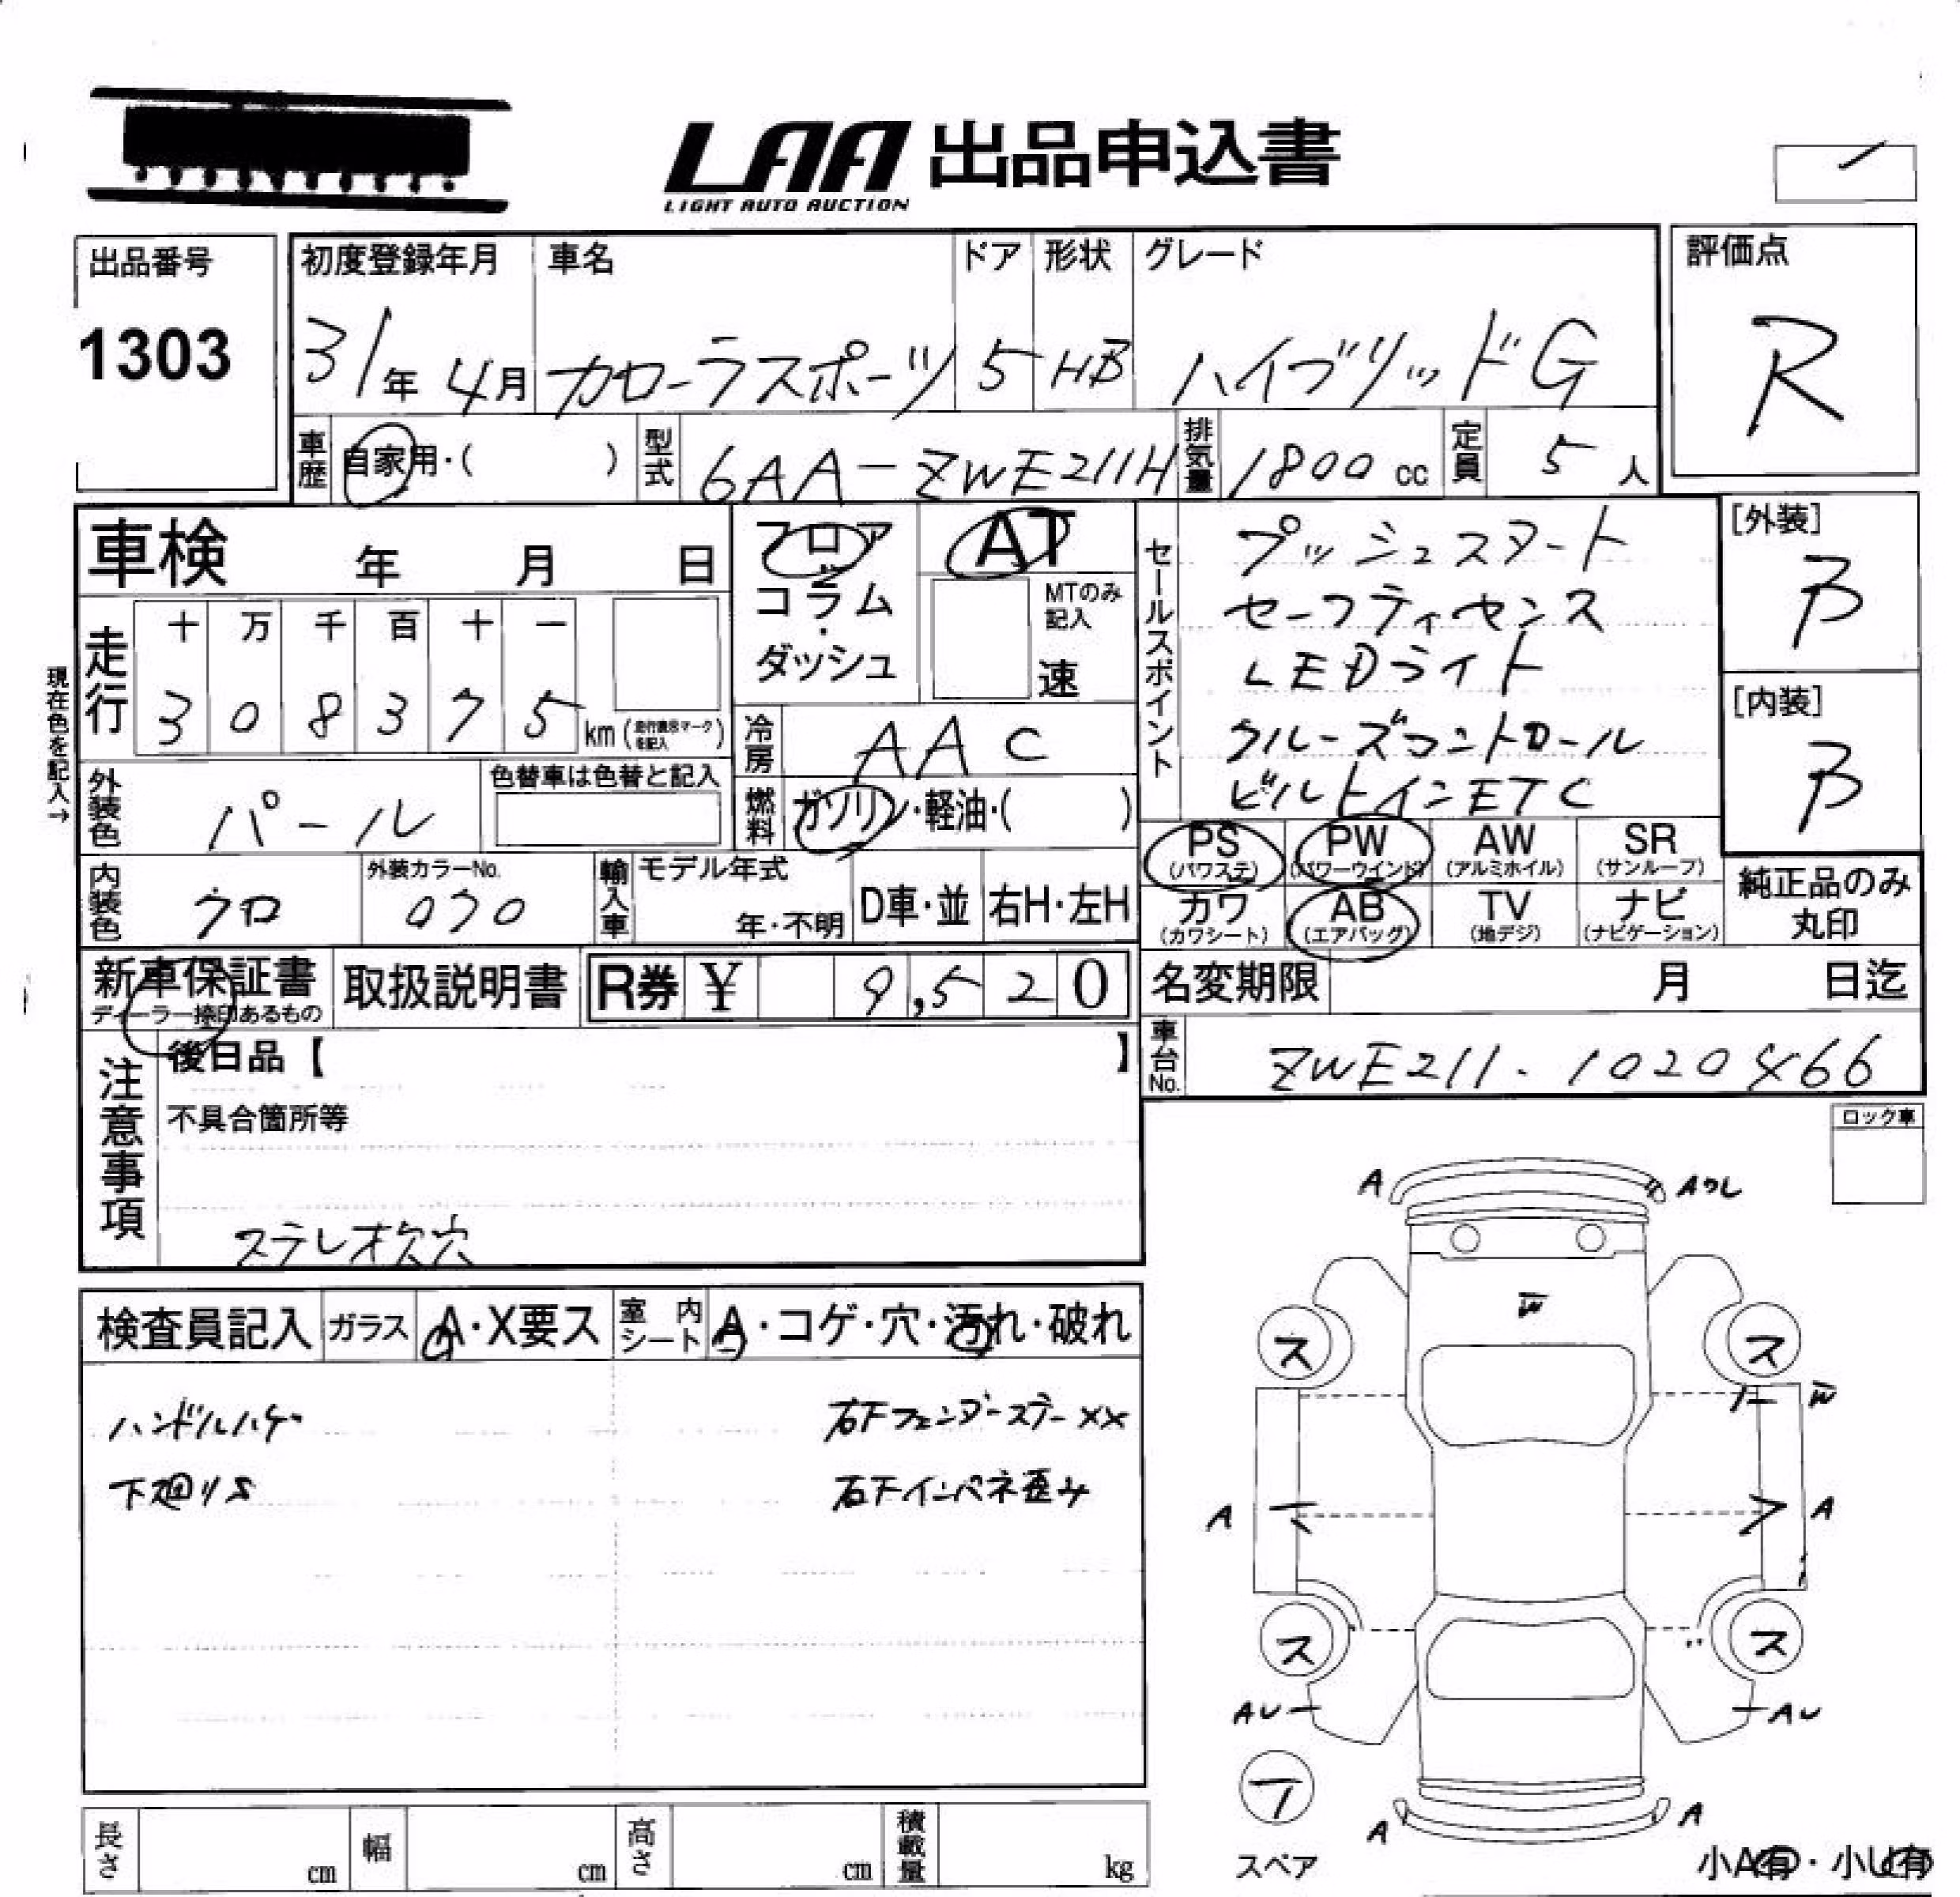 LAA 出品申込書
LIGHT AUTO AUCTION
出品番号
1303
初度登録年月 車名 ドア 形状 グレード
31年 4月 カローラスポーツ 5 HB ハイブリッドG
評価点
R
車歴 自家用・( ) 型式 6AA-ZWE211H 排気量 1800 cc 定員 5 人
車検 年 月 日
フロア
コラム
・
ダッシュ
AT
MTのみ記入
速
走行
十 万 千 百 十 一
3 0 8 3 7 5 km (走行表示マークを記入)
現在色を記入→
冷房 AAC
燃料 ガソリン・軽油・( )
外装色 パール
色替車は色替と記入
内装色 クロ
外装カラーNo.
070
輸入車 モデル年式
年・不明
D車・並 右H・左H
セールスポイント
プッシュスタート
セーフティセンス
LEDライト
クルーズコントロール
ビルトインETC
[外装]
B
[内装]
B
PS (パワステ) PW (パワーウインド) AW (アルミホイル) SR (サンルーフ)
カワ (カワシート) AB (エアバッグ) TV (地デジ) ナビ (ナビゲーション)
純正品のみ
丸印
新車保証書
ディーラー捺印あるもの
取扱説明書
R券 ¥ 9,520
名変期限 月 日迄
車台No. ZWE211-1020466
注意事項
後日品【 】
不具合箇所等
ステレオ欠穴
ロック車
検査員記入 ガラス A・X要ス 室内シート A・コゲ・穴・汚れ・破れ
ハンドルハゲ
下廻りS
右FフェンダーステーXX
右Fインパネ歪み
A
Aワレ
W
ス ス
W
A A
ス ス
AU AU
フ
スペア
A A
小A有・小U有
長さ cm 幅 cm 高さ cm 積載量 kg